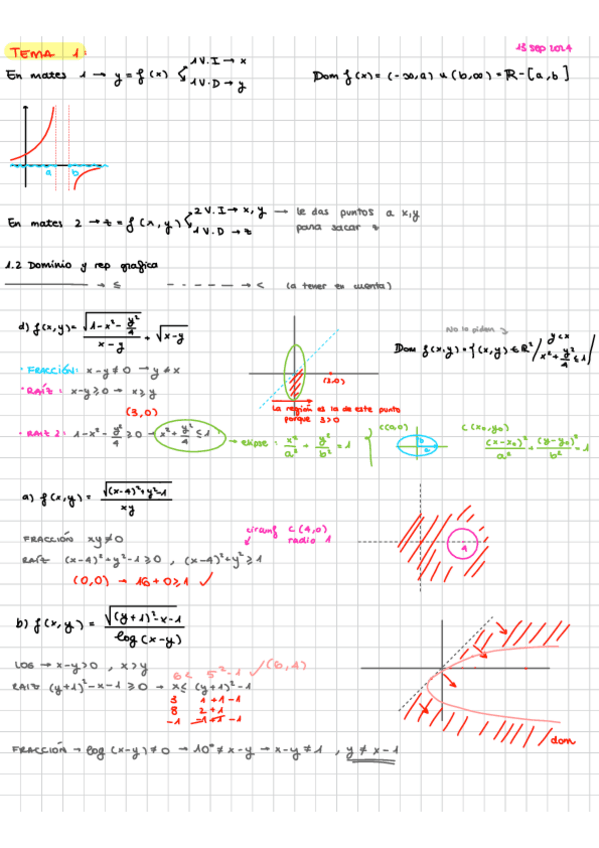 TEMA 1:
13 sep 2024
En mates 1 → y = f(x) 1 V.I → x
1 V.D → y
Dom f(x) = (-∞,a) u (b,∞) = R - [a,b]
a b
En mates 2 → z = f(x,y) 2 V.I → x, y → le das puntos a x,y
1 V.D → z para sacar z
1.2 Dominio y rep grafica
——— → ≤ - - - - - → < (a tener en cuenta)
d) f(x,y) = √(1-x²-y²/4) / (x-y) + √(x-y)
No la piden
Dom f(x,y) = {(x,y) ∈ R² / y<x / x²+y²/4 ≤ 1}
· FRACCIÓN: x-y ≠ 0 → y ≠ x
· RAÍZ: x-y ≥ 0 → x ≥ y
(3,0)
(3,0)
La región es la de este punto
porque 3>0
· RAIZ 2: 1-x²-y²/4 ≥ 0 → x²+y²/4 ≤ 1 → elipse: x²/a² + y²/b² = 1
C(0,0)
b
a
C(x₀,y₀)
(x-x₀)²/a² + (y-y₀)²/b² = 1
a) f(x,y) = √((x-4)²+y²-1) / xy
FRACCIÓN xy ≠ 0
circunf C(4,0)
radio 1
RAÍZ (x-4)²+y²-1 ≥ 0 , (x-4)²+y² ≥ 1
(0,0) → 16+0 ≥ 1 ✓
4
b) f(x,y) = √((y+1)²-x-1) / log(x-y)
LOG → x-y>0 , x>y
6 < 5²-1 ✓ (6,1)
RAIZ (y+1)²-x-1 ≥ 0 → x ≤ (y+1)²-1
3 1+1-1
8 2+1
-1 -1+1-1
dom
FRACCIÓN → log(x-y) ≠ 0 → 10⁰ ≠ x-y → x-y ≠ 1 , y ≠ x-1